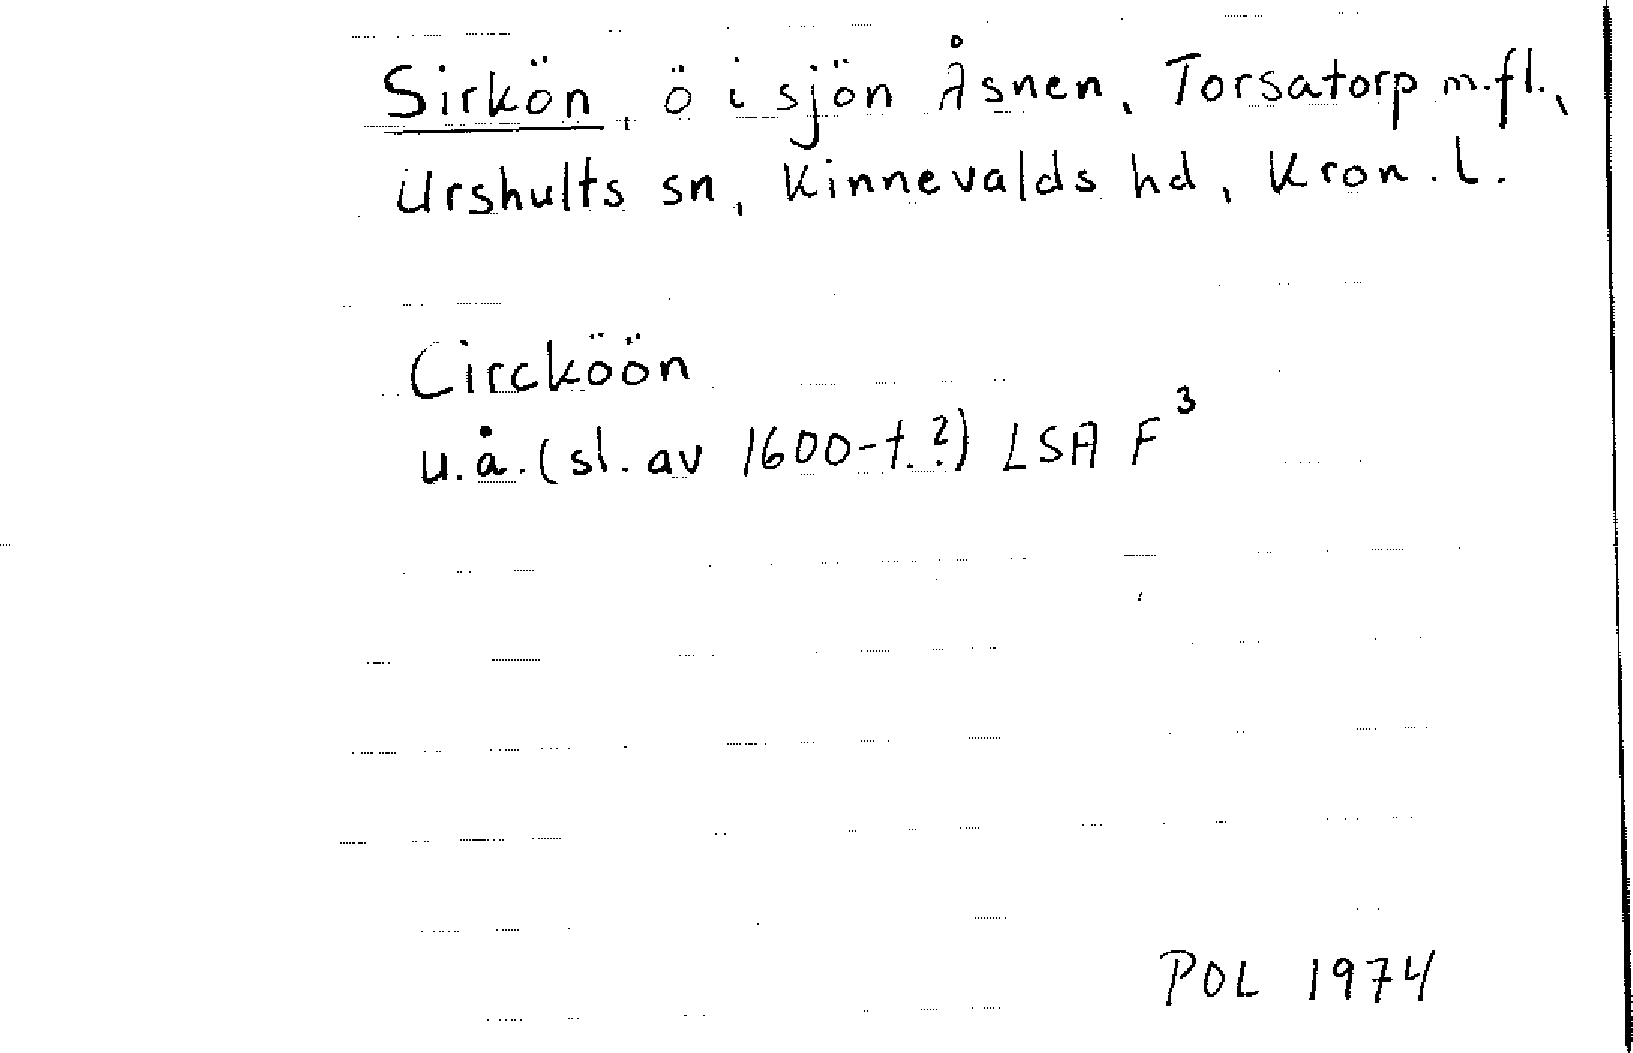 Sirkön, ö i sjön Åsnen, Torsatorp m.fl.,
Urshults sn, Kinnevalds hd, Kron. l.
Circköön
u.å. (sl. av 1600-t.?) LSA F³
POL 1974